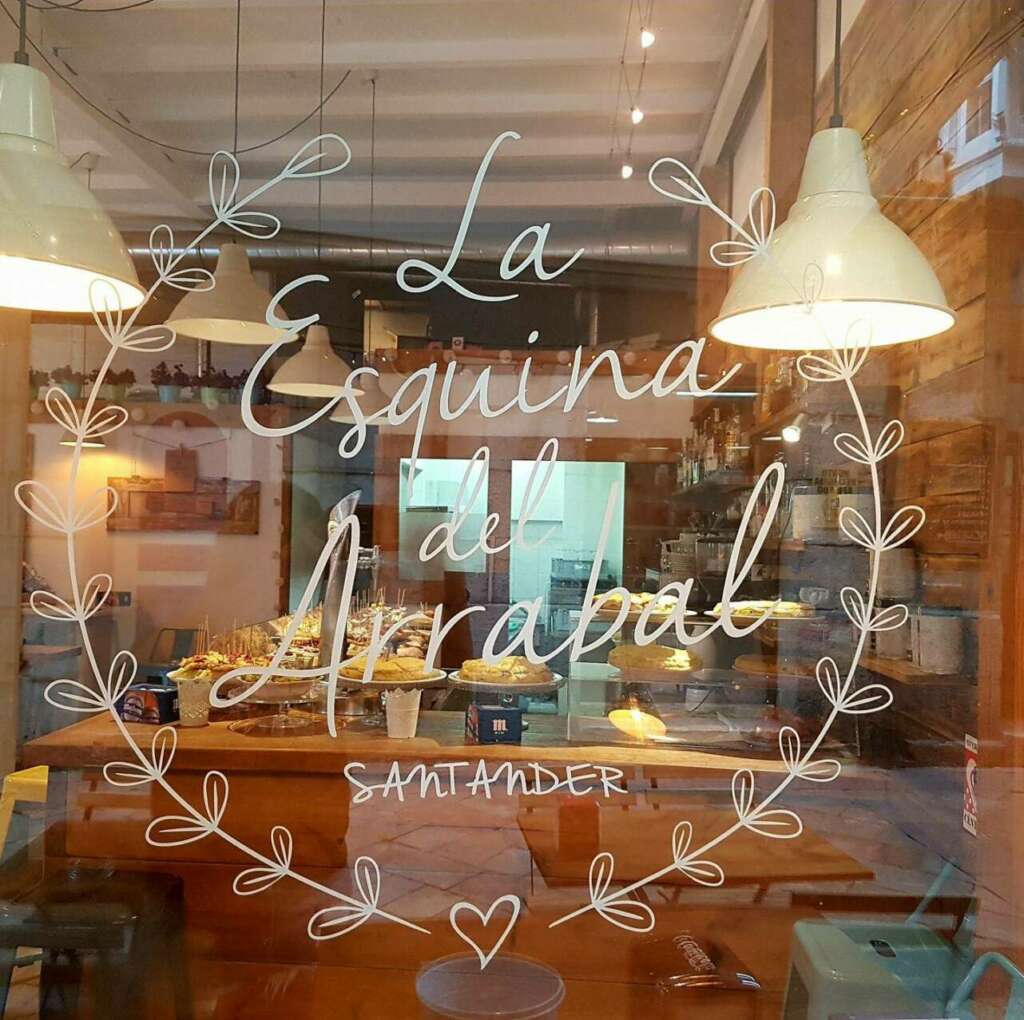 La
Esquina
del
Arrabal
SANTANDER